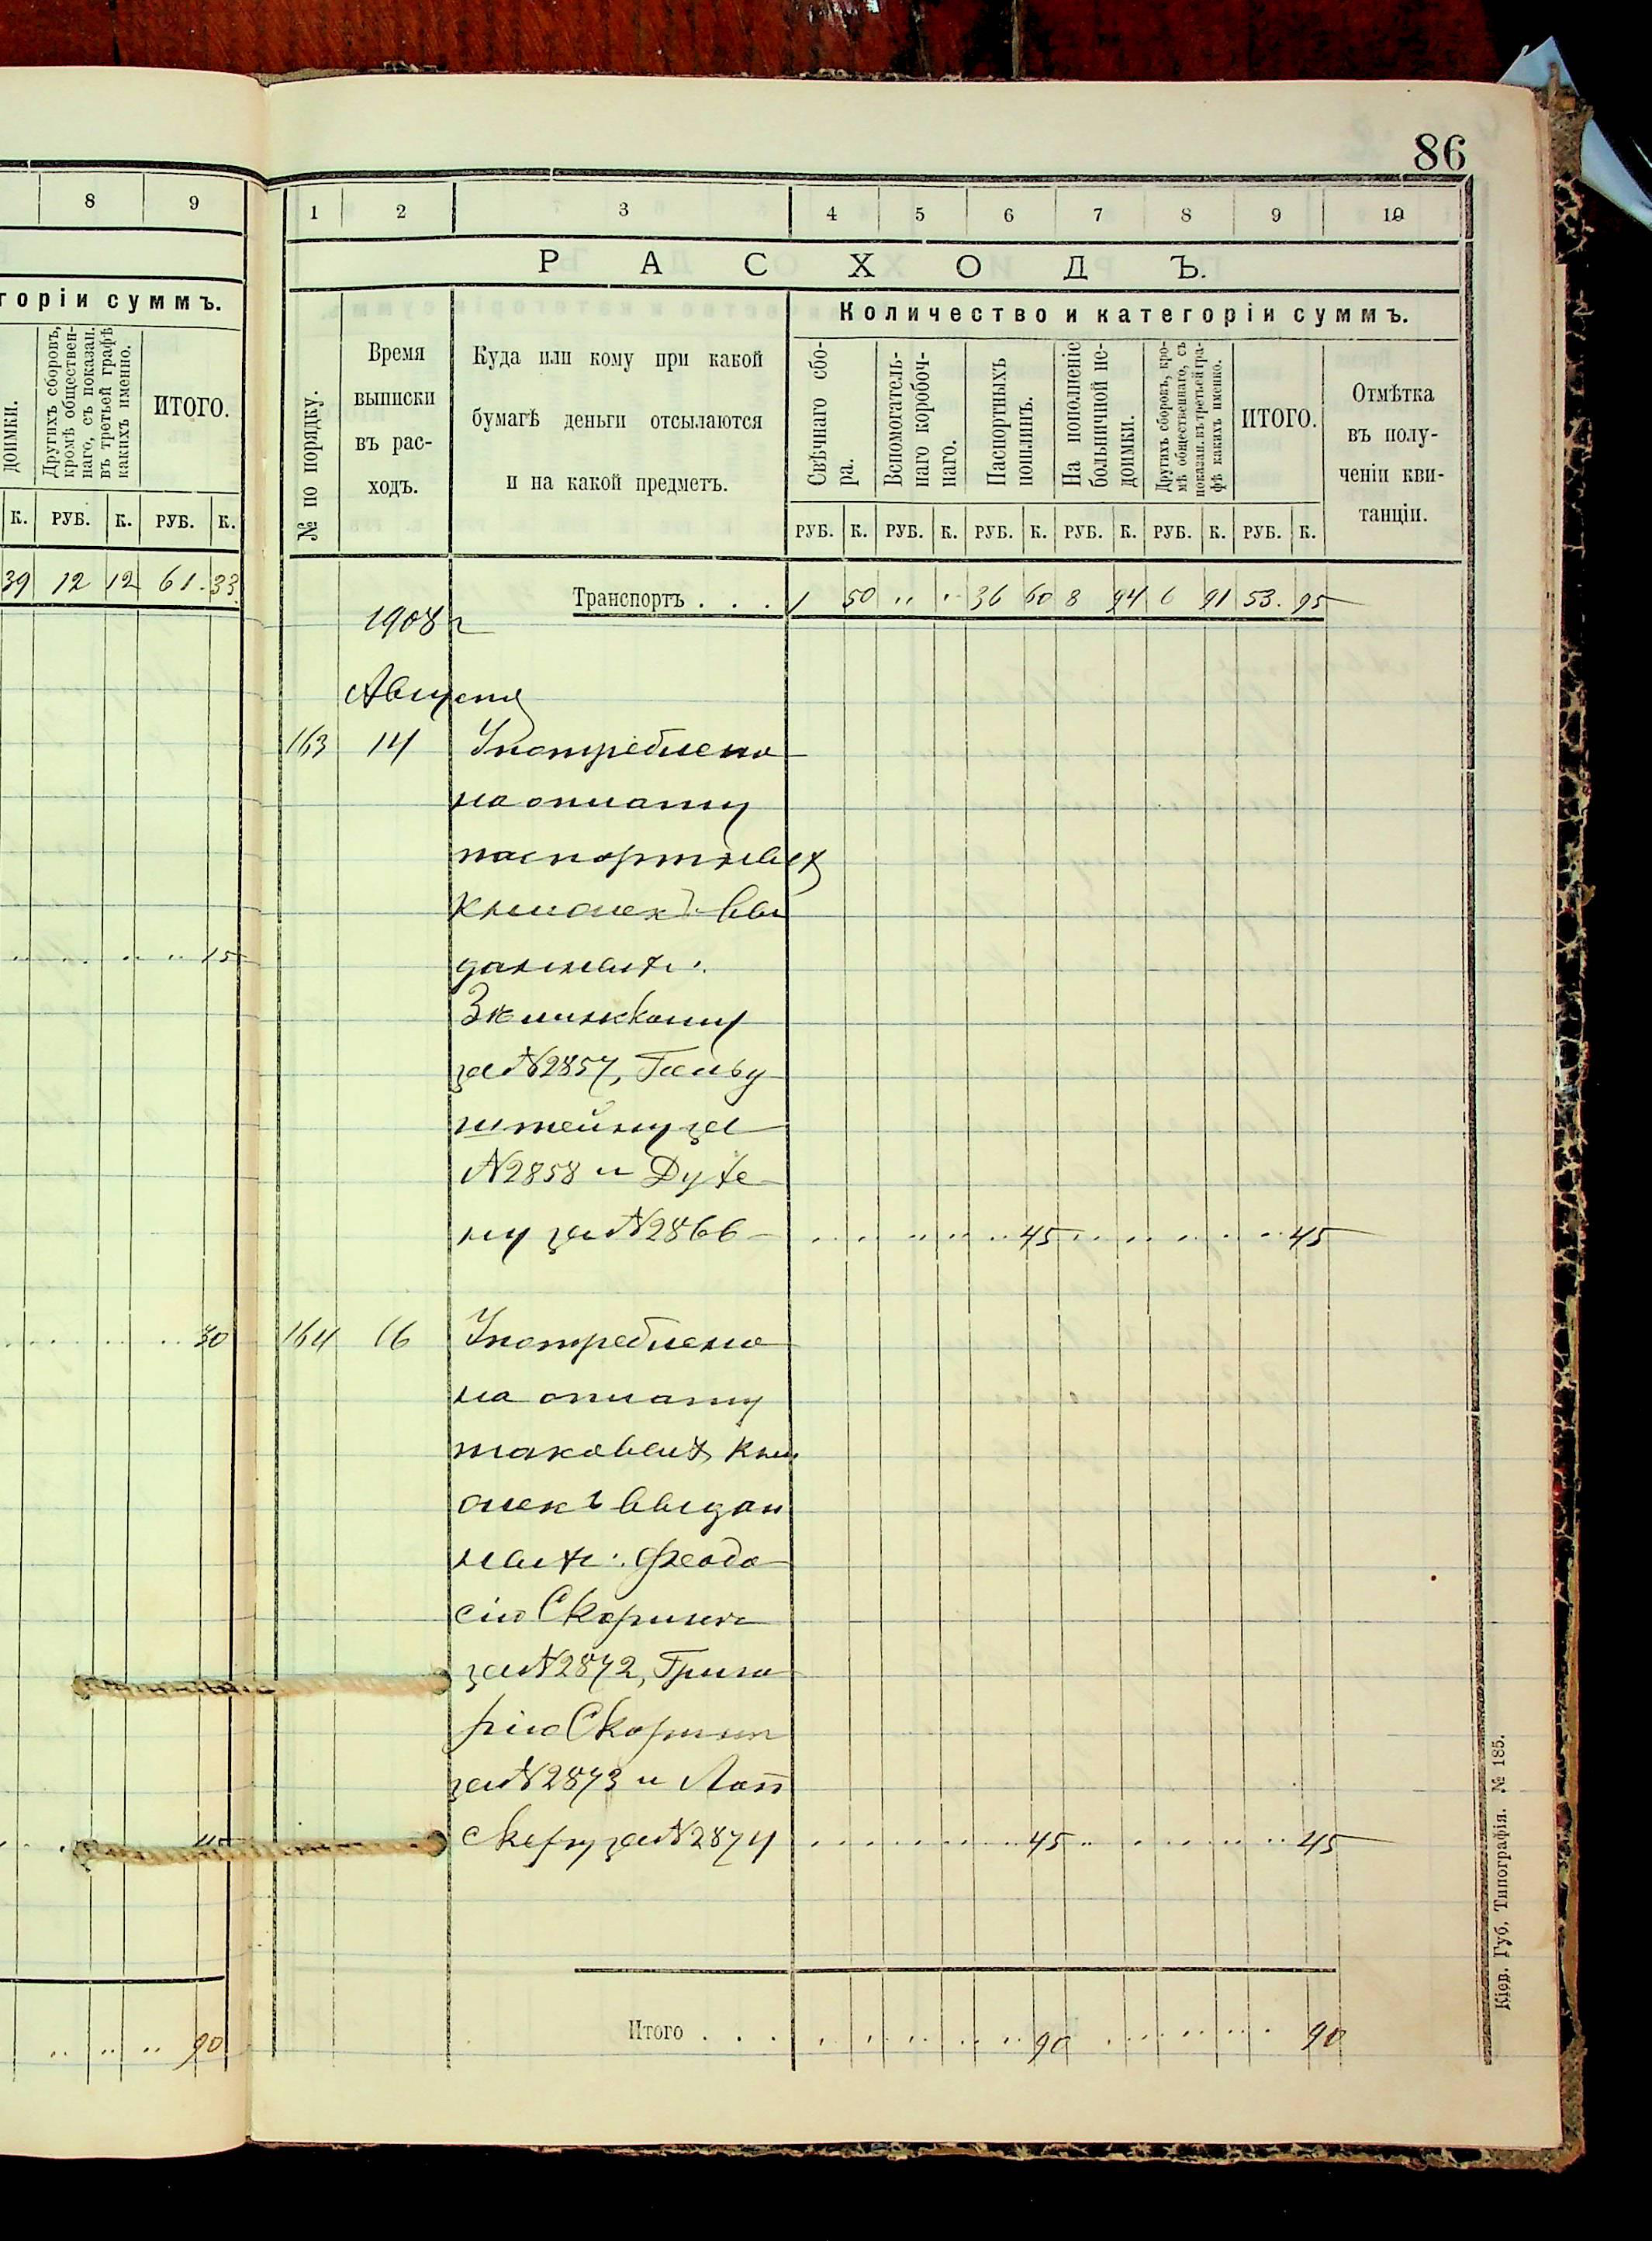 86
8 9
горіи суммъ.
доимки.
Другихъ сборовъ,
кромѣ обществен-
наго, съ показан.
въ третьей графѣ
какихъ именно.
ИТОГО.
К. РУБ. К. РУБ. К.
39 12 12 61. 33
15
30
45
90
1 2 3 4 5 6 7 8 9 10
РАСХОДЪ.
Количество и категоріи суммъ.
№ по порядку.
Время
выписки
въ рас-
ходъ.
Куда или кому при какой
бумагѣ деньги отсылаются
и на какой предметъ.
Свѣчнаго сбо-
ра.
Вспомогатель-
наго коробоч-
наго.
Паспортныхъ
пошлинъ.
На пополненіе
больничной не-
доимки.
Другихъ сборовъ, кро-
мѣ общественнаго, съ
показан. въ третьей гра-
фѣ какихъ именно.
ИТОГО.
Отмѣтка
въ полу-
ченіи кви-
танціи.
РУБ. К. РУБ. К. РУБ. К. РУБ. К. РУБ. К. РУБ. К.
Транспортъ . . . 1 50 " " 36 60 8 94 6 91 53. 95
1908 г
Августа
163 14 Употреблено
на оплату
паспортных
книжекъ вы
данных:
за №2857, Гольд
штейну за
№2858 и Духе
ну за №2866 45 45
164 16 Употреблено
на оплату
таковых кни
жекъ выдан
ных: Феодо
сію
за №2872, Григо
рію
за №2873 и Лап
скеру за №2874 45 45
Итого . . . 90 90
Кіев. Губ. Типографія. № 185.